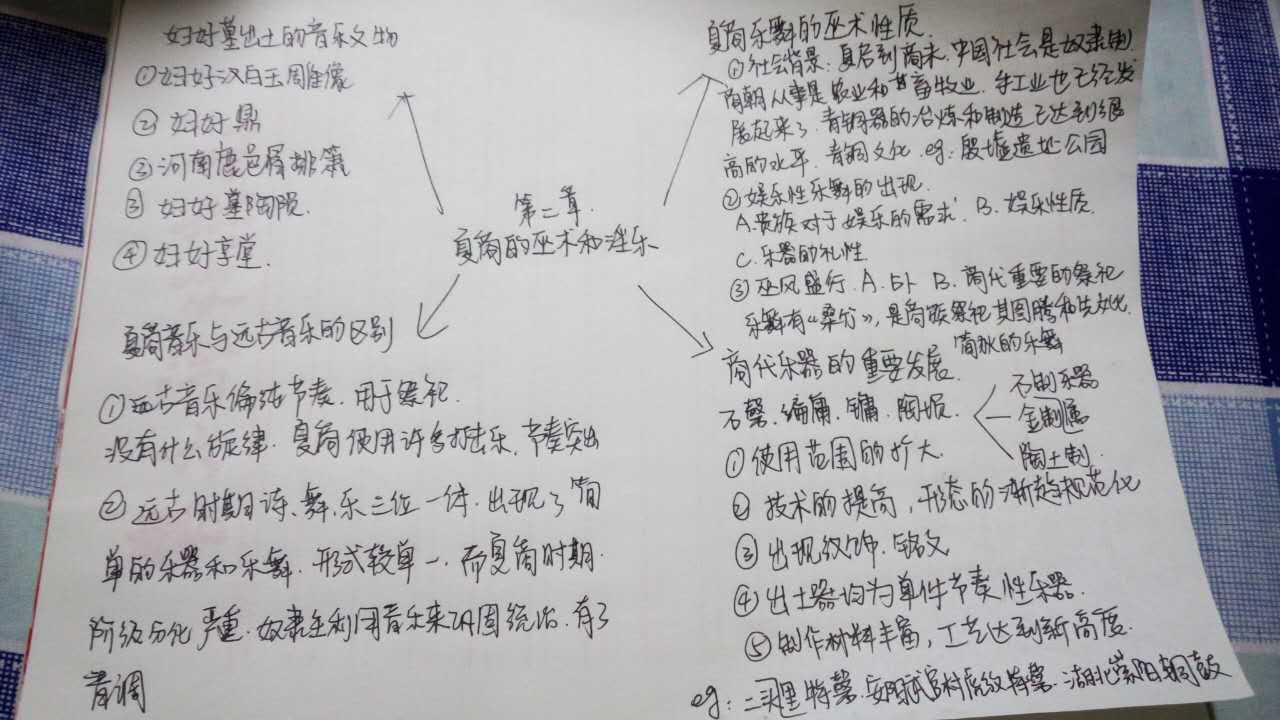 妇好墓出土的音乐文物
①妇好汉白玉雕像
②妇好鼎
③河南鹿邑得排箫
③妇好墓陶埙.
④妇好享堂.
第二章.
夏商的巫术和淫乐
夏商音乐与远古音乐的区别
①远古音乐偏纯节奏.用于祭祀.
没有什么旋律.夏商使用许多打击乐,节奏突出
②远古时期诗、舞、乐三位一体.出现了简
单的乐器和乐舞.形式较单一.而夏商时期.
阶级分化严重.奴隶主利用音乐来巩固统治.有了
音调
夏商乐舞的巫术性质.
①社会背景:夏启到商末.中国社会是奴隶制
商朝从事是农业和畜牧业.手工业也已经发
展起来了.青铜器的冶炼和制造已达到很
高的水平.青铜文化.eg:殷墟遗地公园
②娱乐性乐舞的出现.
A.贵族对于娱乐的需求 B.娱乐性质.
C.乐器的礼性
③巫风盛行.A.占卜 B.商代重要的祭祀
乐舞有《桑竹》,是商族祭祀其图腾和先文化.
简狄的乐舞
商代乐器的重要发展.
石磬.编庸.镛.陶埙.
石制乐器
金制属
陶土制.
①使用范围的扩大.
② 技术的提高,形态的渐趋规范化
③出现纹饰.铭文
④出土器均为单件节奏性乐器.
⑤制作材料丰富,工艺达到新高度.
eg:二里特磬.安阳武官村虎纹特磬.湖北崇阳铜鼓